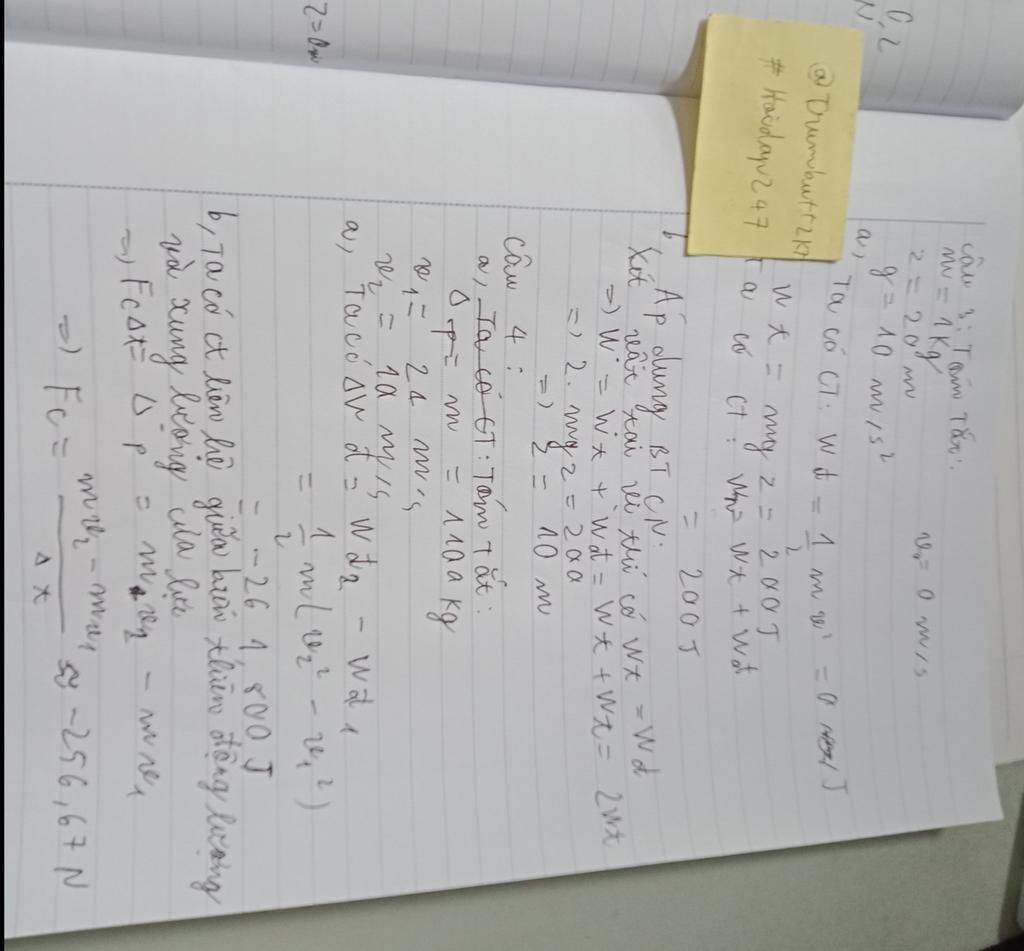 @Trumbutt2k7
# Hoidap247
Câu 3: Tóm tắt:
m = 1kg
z = 20 m
g = 10 m/s²
v₀ = 0 m/s
a,
Ta có CT: Wđ = 1/2 m v² = 0 J
Wt = mgz = 200J
Ta có CT: W = Wt + Wđ
= 200 J
b
Áp dụng BTCN:
Xét vật tại vị trí có Wt = Wđ
=> W = Wt + Wđ = Wt + Wt = 2Wt
=> 2.mgz = 200
=> z = 10 m
Câu 4:
a, Ta có CT: Tóm tắt:
Δp = m = 1100 kg
v₁ = 24 m/s
v₂ = 10 m/s
a, Ta có ΔWđ = Wđ₂ - Wđ₁
= 1/2 m(v₂² - v₁²)
= -261,800 J
b, Ta có ct liên hệ giữa biến thiên động lượng
và xung lượng của lực
=> FcΔt = Δp = m.v₂ - mv₁
=> Fc = mv₂ - mv₁ / Δt ≈ -256,67 N